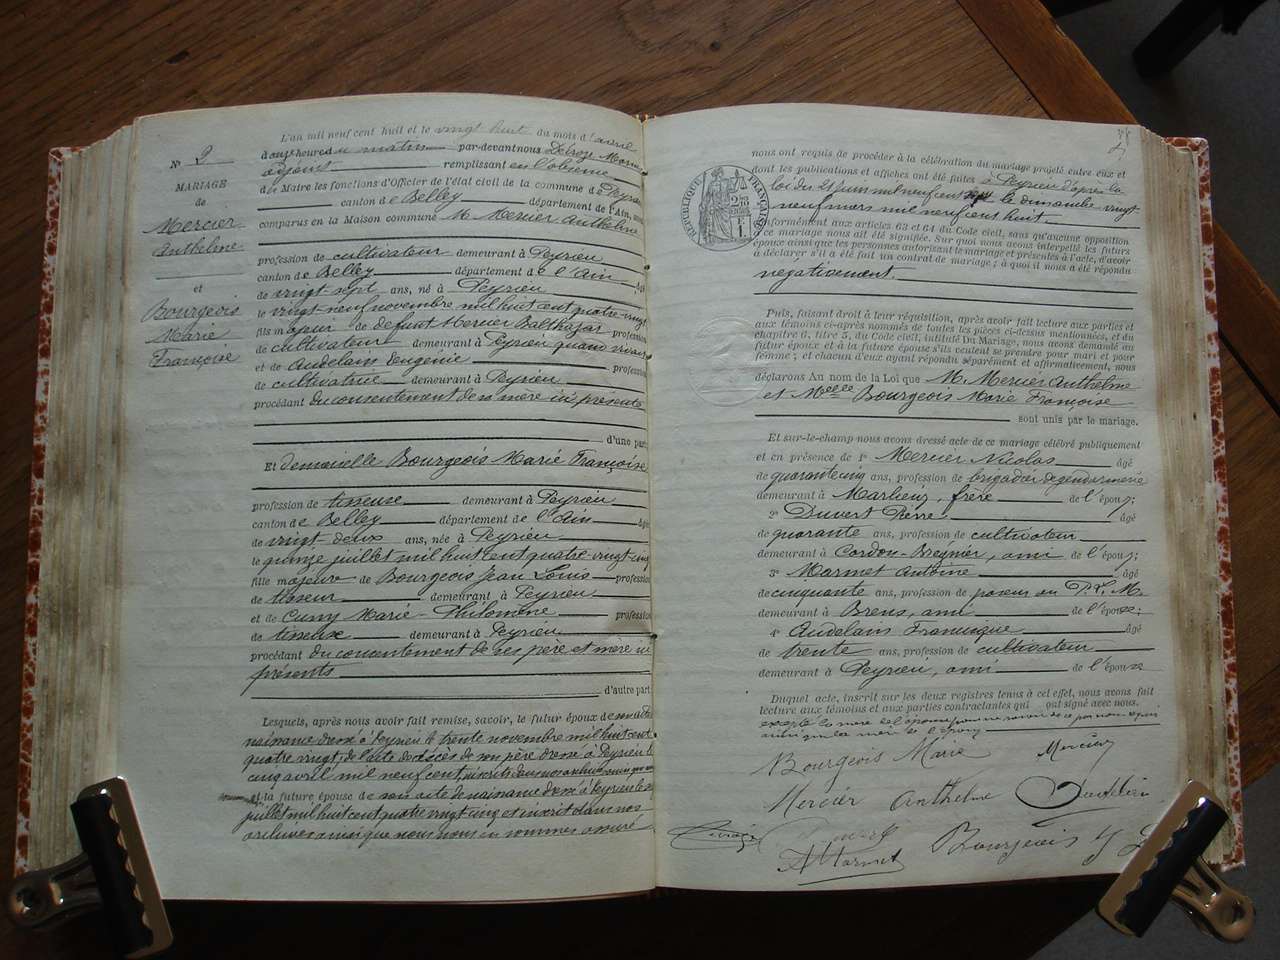 L'an mil neuf cent huit et le vingt huit du mois d'avril
à onze heure du matin par-devant nous Delroze Marius
adjoint remplissant en l'absence
de Maire les fonctions d'Officier de l'état civil de la commune de Peyrieu
canton de Belley département de l'Ain, sont
comparus en la Maison commune M. Mercier Anthelme
profession de cultivateur demeurant à Peyrieu
canton de Belley département de l'Ain âgé
de vingt sept ans, né à Peyrieu
le vingt neuf novembre mil huit cent quatre vingt
fils majeur de défunt Mercier Balthazar profession
de cultivateur demeurant à Peyrieu quand vivait
et de Audelain Eugénie profession
de cultivatrice demeurant à Peyrieu
procédant du consentement de sa mère ici présente
d'une part
Et demoiselle Bourgeois Marie Françoise
profession de tisseuse demeurant à Peyrieu
canton de Belley département de l'Ain âgée
de vingt-deux ans, née à Peyrieu
le quinze juillet mil huit cent quatre-vingt-cinq
fille majeure de Bourgeois Jean Louis profession
de tisseur demeurant à Peyrieu
et de Cuny Marie-Philomène profession
de tisseuse demeurant à Peyrieu
procédant du consentement de ses père et mère ici
présents
d'autre part
Lesquels, après nous avoir fait remise, savoir, le futur époux de son acte
naissance dressé à Peyrieu le trente novembre mil huit cent
quatre vingt, de l'acte de décès de son père dressé à Peyrieu le
cinq avril mil neuf cent, inscrits dans nos archives
et la future épouse de son acte de naissance dressé à Peyrieu le
juillet mil huit cent quatre vingt cinq et inscrit dans nos
archives ainsi que nous nous en sommes assuré
N° 2
MARIAGE
de
Mercier
Anthelme
et
Bourgeois
Marie
Françoise
nous ont requis de procéder à la célébration du mariage projeté entre eux et
dont les publications et affiches ont été faites à Peyrieu d'après la
loi du 21 juin mil neuf cent sept le dimanche vingt
neuf mars mil neuf cent huit
conformément aux articles 63 et 64 du Code civil, sans qu'aucune opposition
à ce mariage nous ait été signifiée. Sur quoi nous avons interpellé les futurs
époux ainsi que les personnes autorisant le mariage et présentes à l'acte, d'avoir
à déclarer s'il a été fait un contrat de mariage ; à quoi il nous a été répondu
négativement.
RÉPUBLIQUE FRANÇAISE
Puis, faisant droit à leur réquisition, après avoir fait lecture aux parties et
aux témoins ci-après nommés de toutes les pièces ci-dessus mentionnées, et du
chapitre 6, titre 5, du Code civil, intitulé Du Mariage, nous avons demandé au
futur époux et à la future épouse s'ils veulent se prendre pour mari et pour
femme ; et chacun d'eux ayant répondu séparément et affirmativement, nous
déclarons Au nom de la Loi que M. Mercier Anthelme
et Melle Bourgeois Marie Françoise
sont unis par le mariage.
Et sur-le-champ nous avons dressé acte de ce mariage célébré publiquement
et en présence de 1° Mercier Nicolas âgé
de quarante cinq ans, profession de brigadier de gendarmerie
demeurant à Marlieux, frère de l'époux;
2° Duvert Pierre âgé
de quarante ans, profession de cultivateur
demeurant à Cordon-Brégnier, ami de l'époux;
3° Marmet Antoine âgé
de cinquante ans, profession de poseur au P.L.M.
demeurant à Brens, ami de l'épouse;
4° Audelain Francisque âgé
de trente ans, profession de cultivateur
demeurant à Peyrieu, ami de l'épouse
Duquel acte, inscrit sur les deux registres tenus à cet effet, nous avons fait
lecture aux témoins et aux parties contractantes qui ont signé avec nous.
Bourgeois Marie Mercier
Mercier Anthelme Audelain
Duvert
A Marmet Bourgeois J L